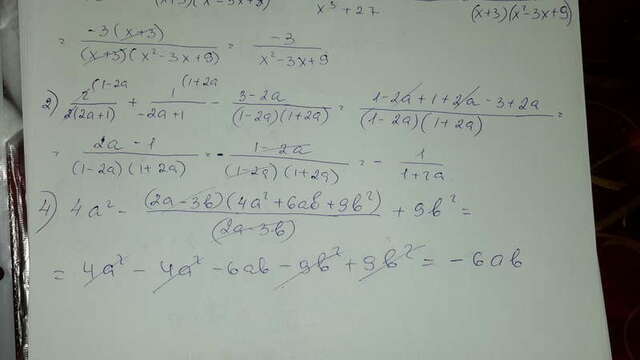 x³ + 27 (x+3)(x²-3x+9)
= -3(x+3) / (x+3)(x²-3x+9) = -3 / x²-3x+9
2) 2 (1-2a / 2(2a+1) + 1 (1+2a / -2a+1 - 3-2a / (1-2a)(1+2a) = 1-2a+1+2a-3+2a / (1-2a)(1+2a) =
= 2a-1 / (1-2a)(1+2a) = - 1-2a / (1-2a)(1+2a) = - 1 / 1+2a
4) 4a² - (2a-3b)(4a²+6ab+9b²) / (2a-3b) + 9b² =
= 4a² - 4a² - 6ab - 9b² + 9b² = -6ab